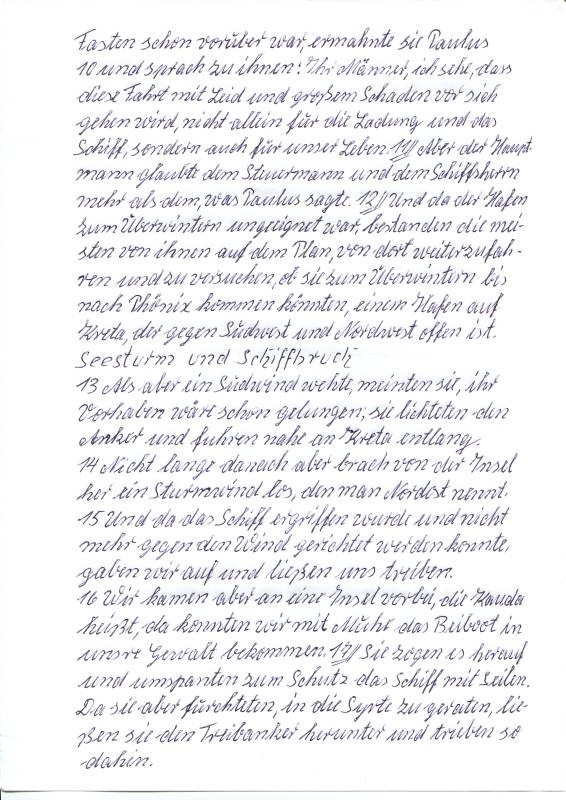 Fasten schon vorüber war, ermahnte sie Paulus
10 und sprach zu ihnen: Ihr Männer, ich sehe, dass
diese Fahrt mit Leid und großem Schaden vor sich
gehen wird, nicht allein für die Ladung und das
Schiff, sondern auch für unser Leben. 11// Aber der Haupt-
mann glaubte dem Steuermann und dem Schiffsherrn
mehr als dem, was Paulus sagte. 12// Und da der Hafen
zum Überwintern ungeeignet war, bestanden die mei-
sten von ihnen auf dem Plan, von dort weiterzufah-
ren und zu versuchen, ob sie zum Überwintern bis
nach Phönix kommen könnten, einem Hafen auf
Kreta, der gegen Südwest und Nordwest offen ist.
Seesturm und Schiffbruch
13 Als aber ein Südwind wehte, meinten sie, ihr
Vorhaben wäre schon gelungen; sie lichteten den
Anker und fuhren nahe an Kreta entlang.
14 Nicht lange danach aber brach von der Insel
her ein Sturmwind los, den man Nordost nennt.
15 Und da das Schiff ergriffen wurde und nicht
mehr gegen den Wind gerichtet werden konnte,
gaben wir auf und ließen uns treiben.
16 Wir kamen aber an eine Insel vorbei, die Kauda
heißt, da konnten wir mit Mühe das Beiboot in
unsre Gewalt bekommen. 17// Sie zogen es herauf
und umspanten zum Schutz das Schiff mit Seilen.
Da sie aber fürchteten, in die Syrte zu geraten, lie-
ßen sie den Treibanker herunter und trieben so
dahin.